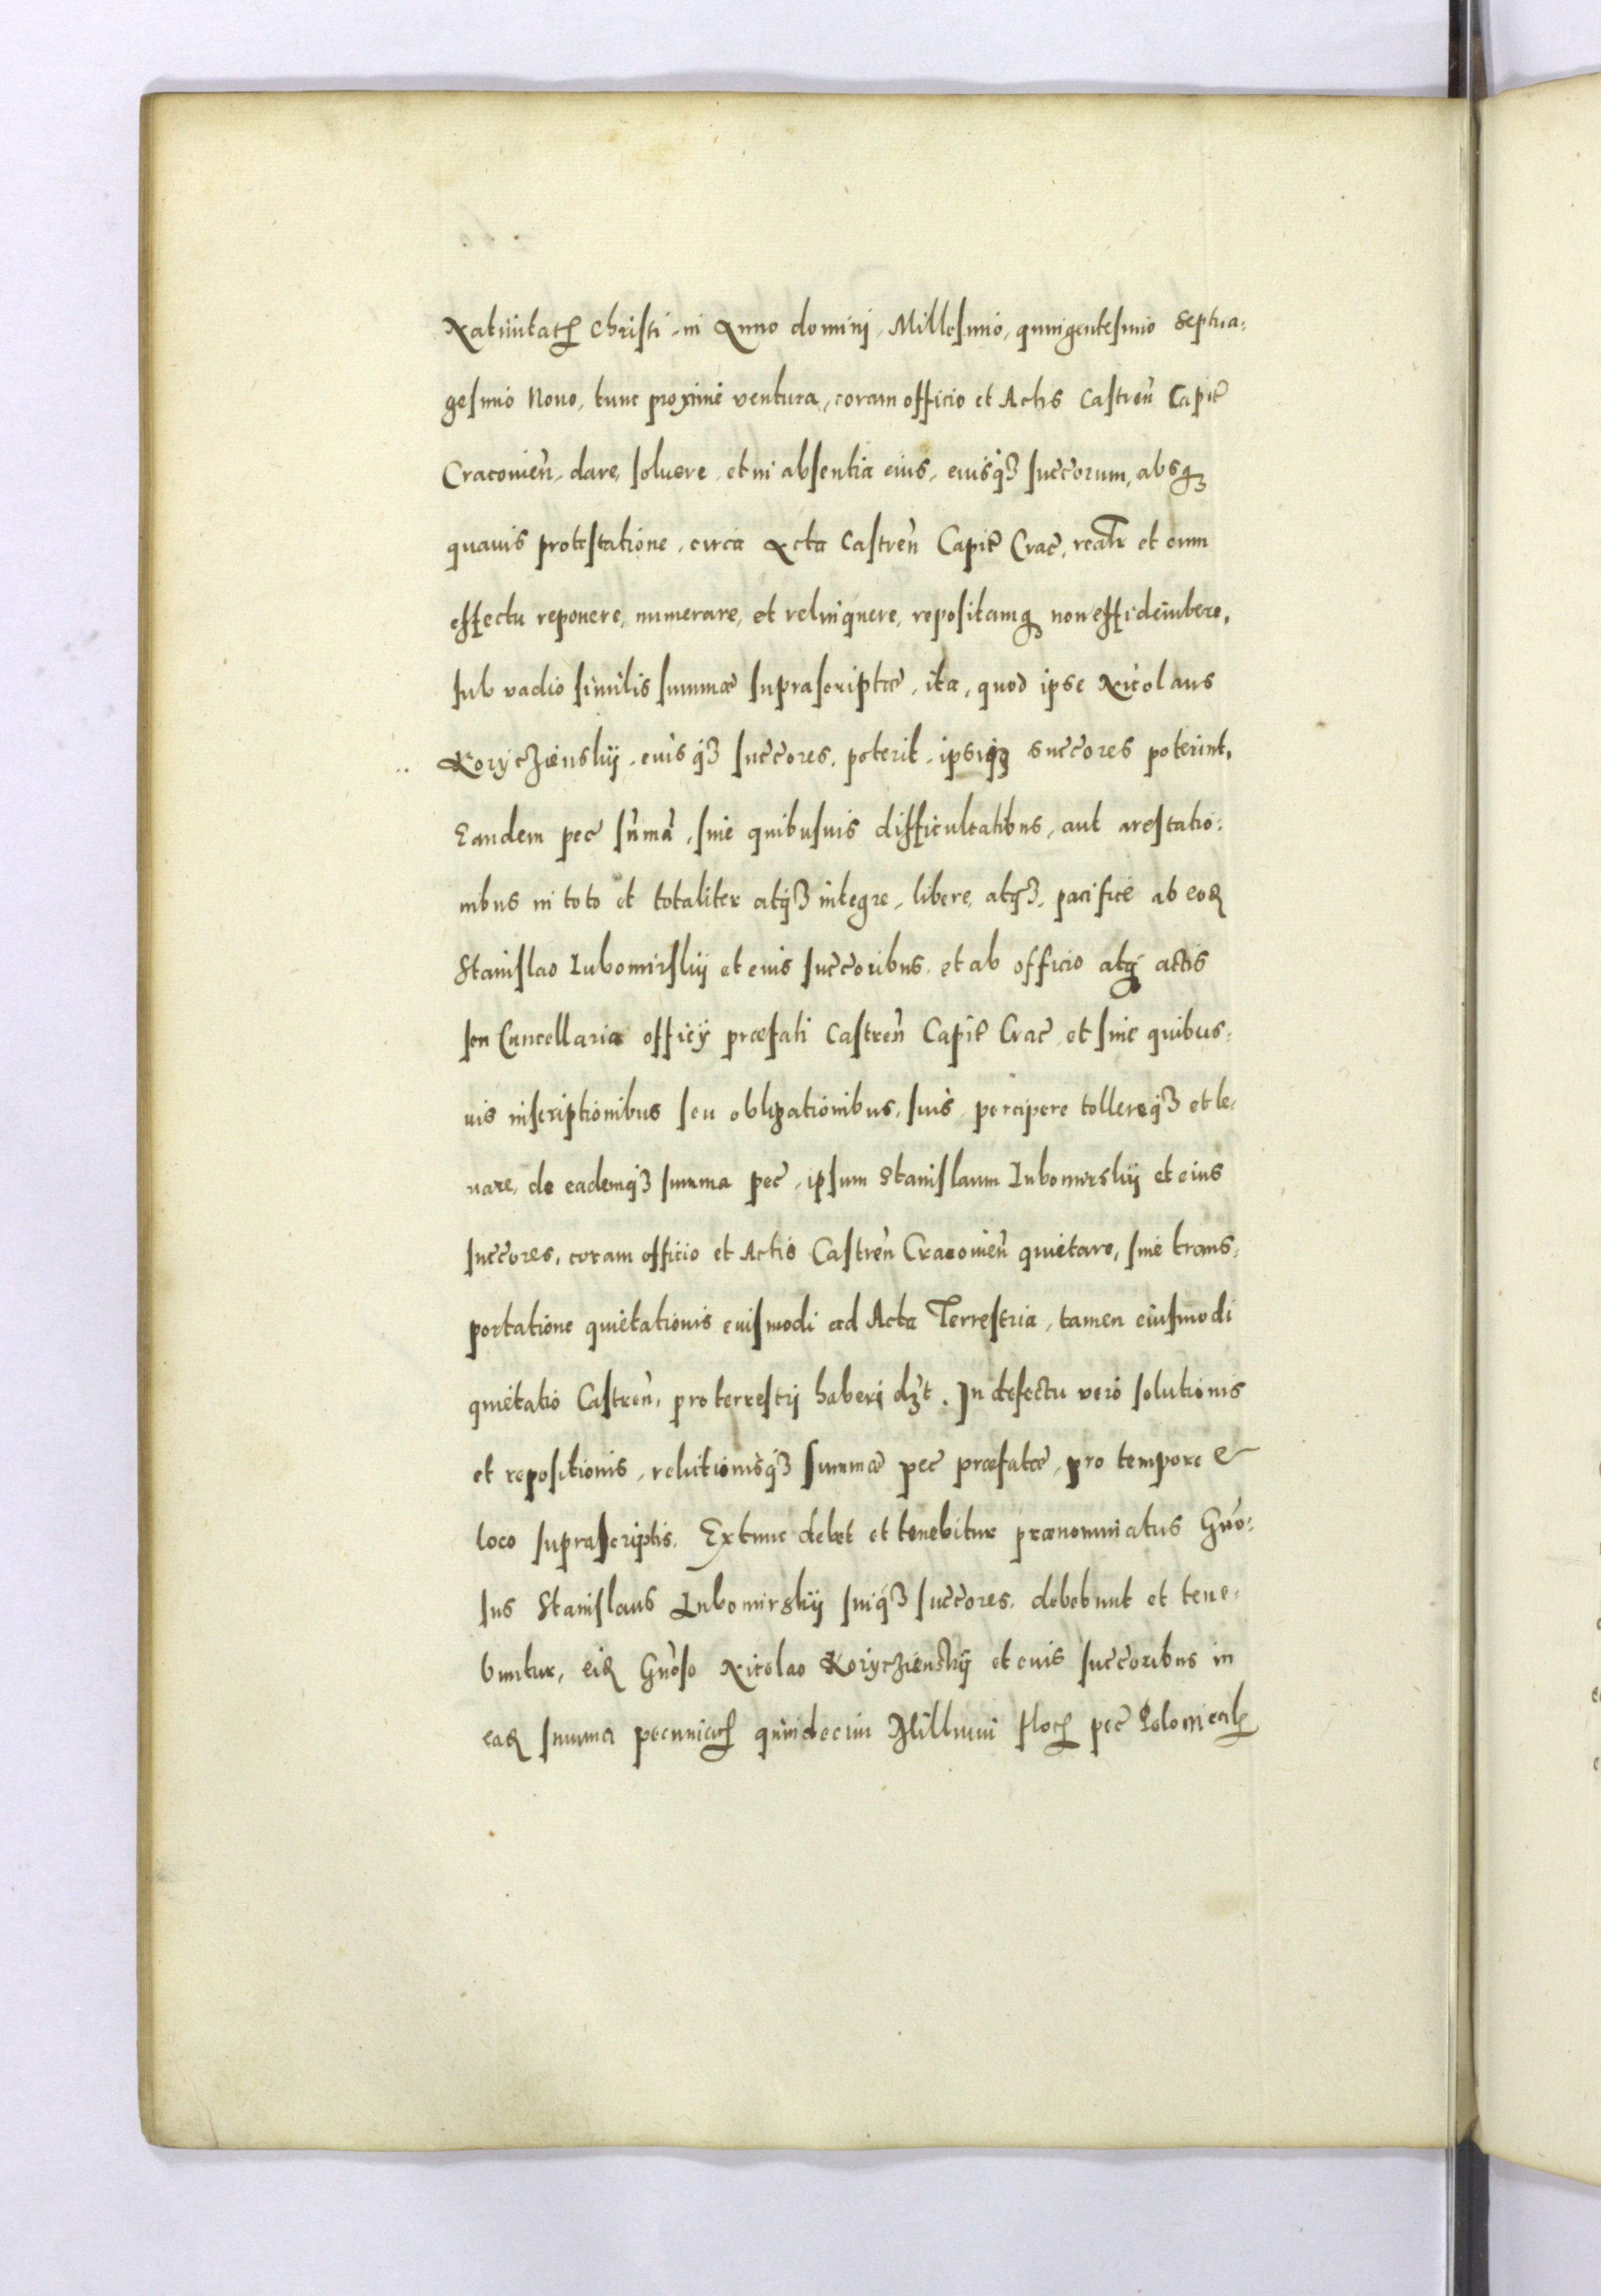 Natiuitatꝭ Christi in Anno domini, Millesimo, quingentesimo Septua⸗
gesimo Nono, tunc proxime ventura, coram officio et Actis Castren̄ Capit̄
Cracouien̄, dare, soluere, et in absentia eius, eiusqꝫ succ̄orum, absqꝫ
quauis protestatione, circa Acta Castren̄ Capit̄ Crac̄, realr̄ et cum
effectu reponere, numerare, et relinquere, repositamqꝫ non
sub vadio similis summæ suprascriptæ, ita, quod ipse Nicolaus
Koryczienskij, eiusqꝫ succ̄ores, poterit, ipsiqꝫ succ̄ores poterint,
Eandem pec̄ sum̄ā, sine quibusuis difficultatibus, aut arestatio⸗
nibus in toto et totaliter atqꝫ integre, libere, atqꝫ pacifice ab eoꝝ
Stanislao Lubomirskij et eius succ̄oribus, et ab officio atqꝫ actis
seu Cancellaria officÿ præfati Castren̄ Capit̄ Crac̄ et sine quibus⸗
uis inscriptionibus seu obligationibus, suis, percipere tollereqꝫ et le⸗
uare, de eademqꝫ summa pec̄, ipsum Stanislaum Lubomirskij et eius
succ̄ores, coram officio et Actis Castren̄ Cracouien̄ quietare, sine trans⸗
portatione quietationis eiusmodi ad Acta Terrestria, tamen eiusmodi
quietatio Castren̄, pro terrestrj haberj dꝫt. In defectu vero solutionis
et repositionis, relutionisqꝫ summæ pec̄ præfatæ, pro tempore &
loco suprascriptis. Extunc debet et tenebitur prænominatus Gn̄o⸗
sus Stanislaus Lubomirskij suiqꝫ succ̄ores, debebunt et tene⸗
buntur, eiꝝ Gn̄oso Nicolao Koryczienskij et eius succ̄oribus in
eaꝝ summa pecuniarꝭ quindecim Millium florꝭ pec̄ Polonicalꝭ